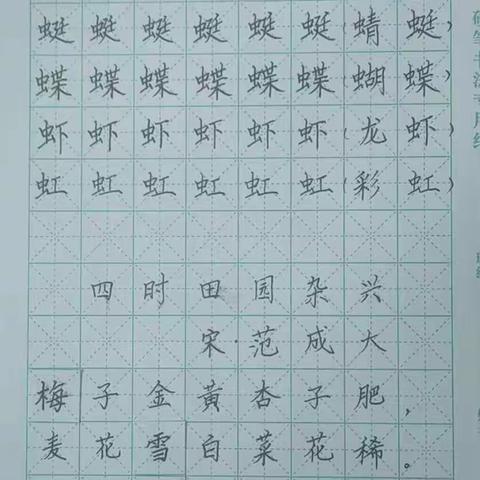 蜓蜓蜓蜓蜓蜓(蜻蜓)
蝶蝶蝶蝶蝶蝶(蝴蝶)
虾虾虾虾虾虾(龙虾)
虹虹虹虹虹虹(彩虹)
四时田园杂兴
宋·范成大
梅子金黄杏子肥，
麦花雪白菜花稀。